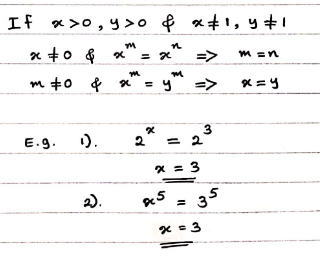 If x>0, y>0 & x≠1, y≠1
x≠0 & x^m = x^n => m=n
m≠0 & x^m = y^m => x=y
E.g. 1). 2^x = 2^3
x = 3
2). x^5 = 3^5
x = 3